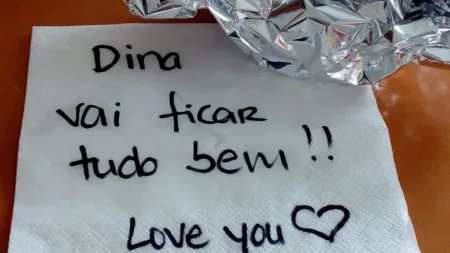 Dina
vai ficar
tudo bem!!
Love you ♡